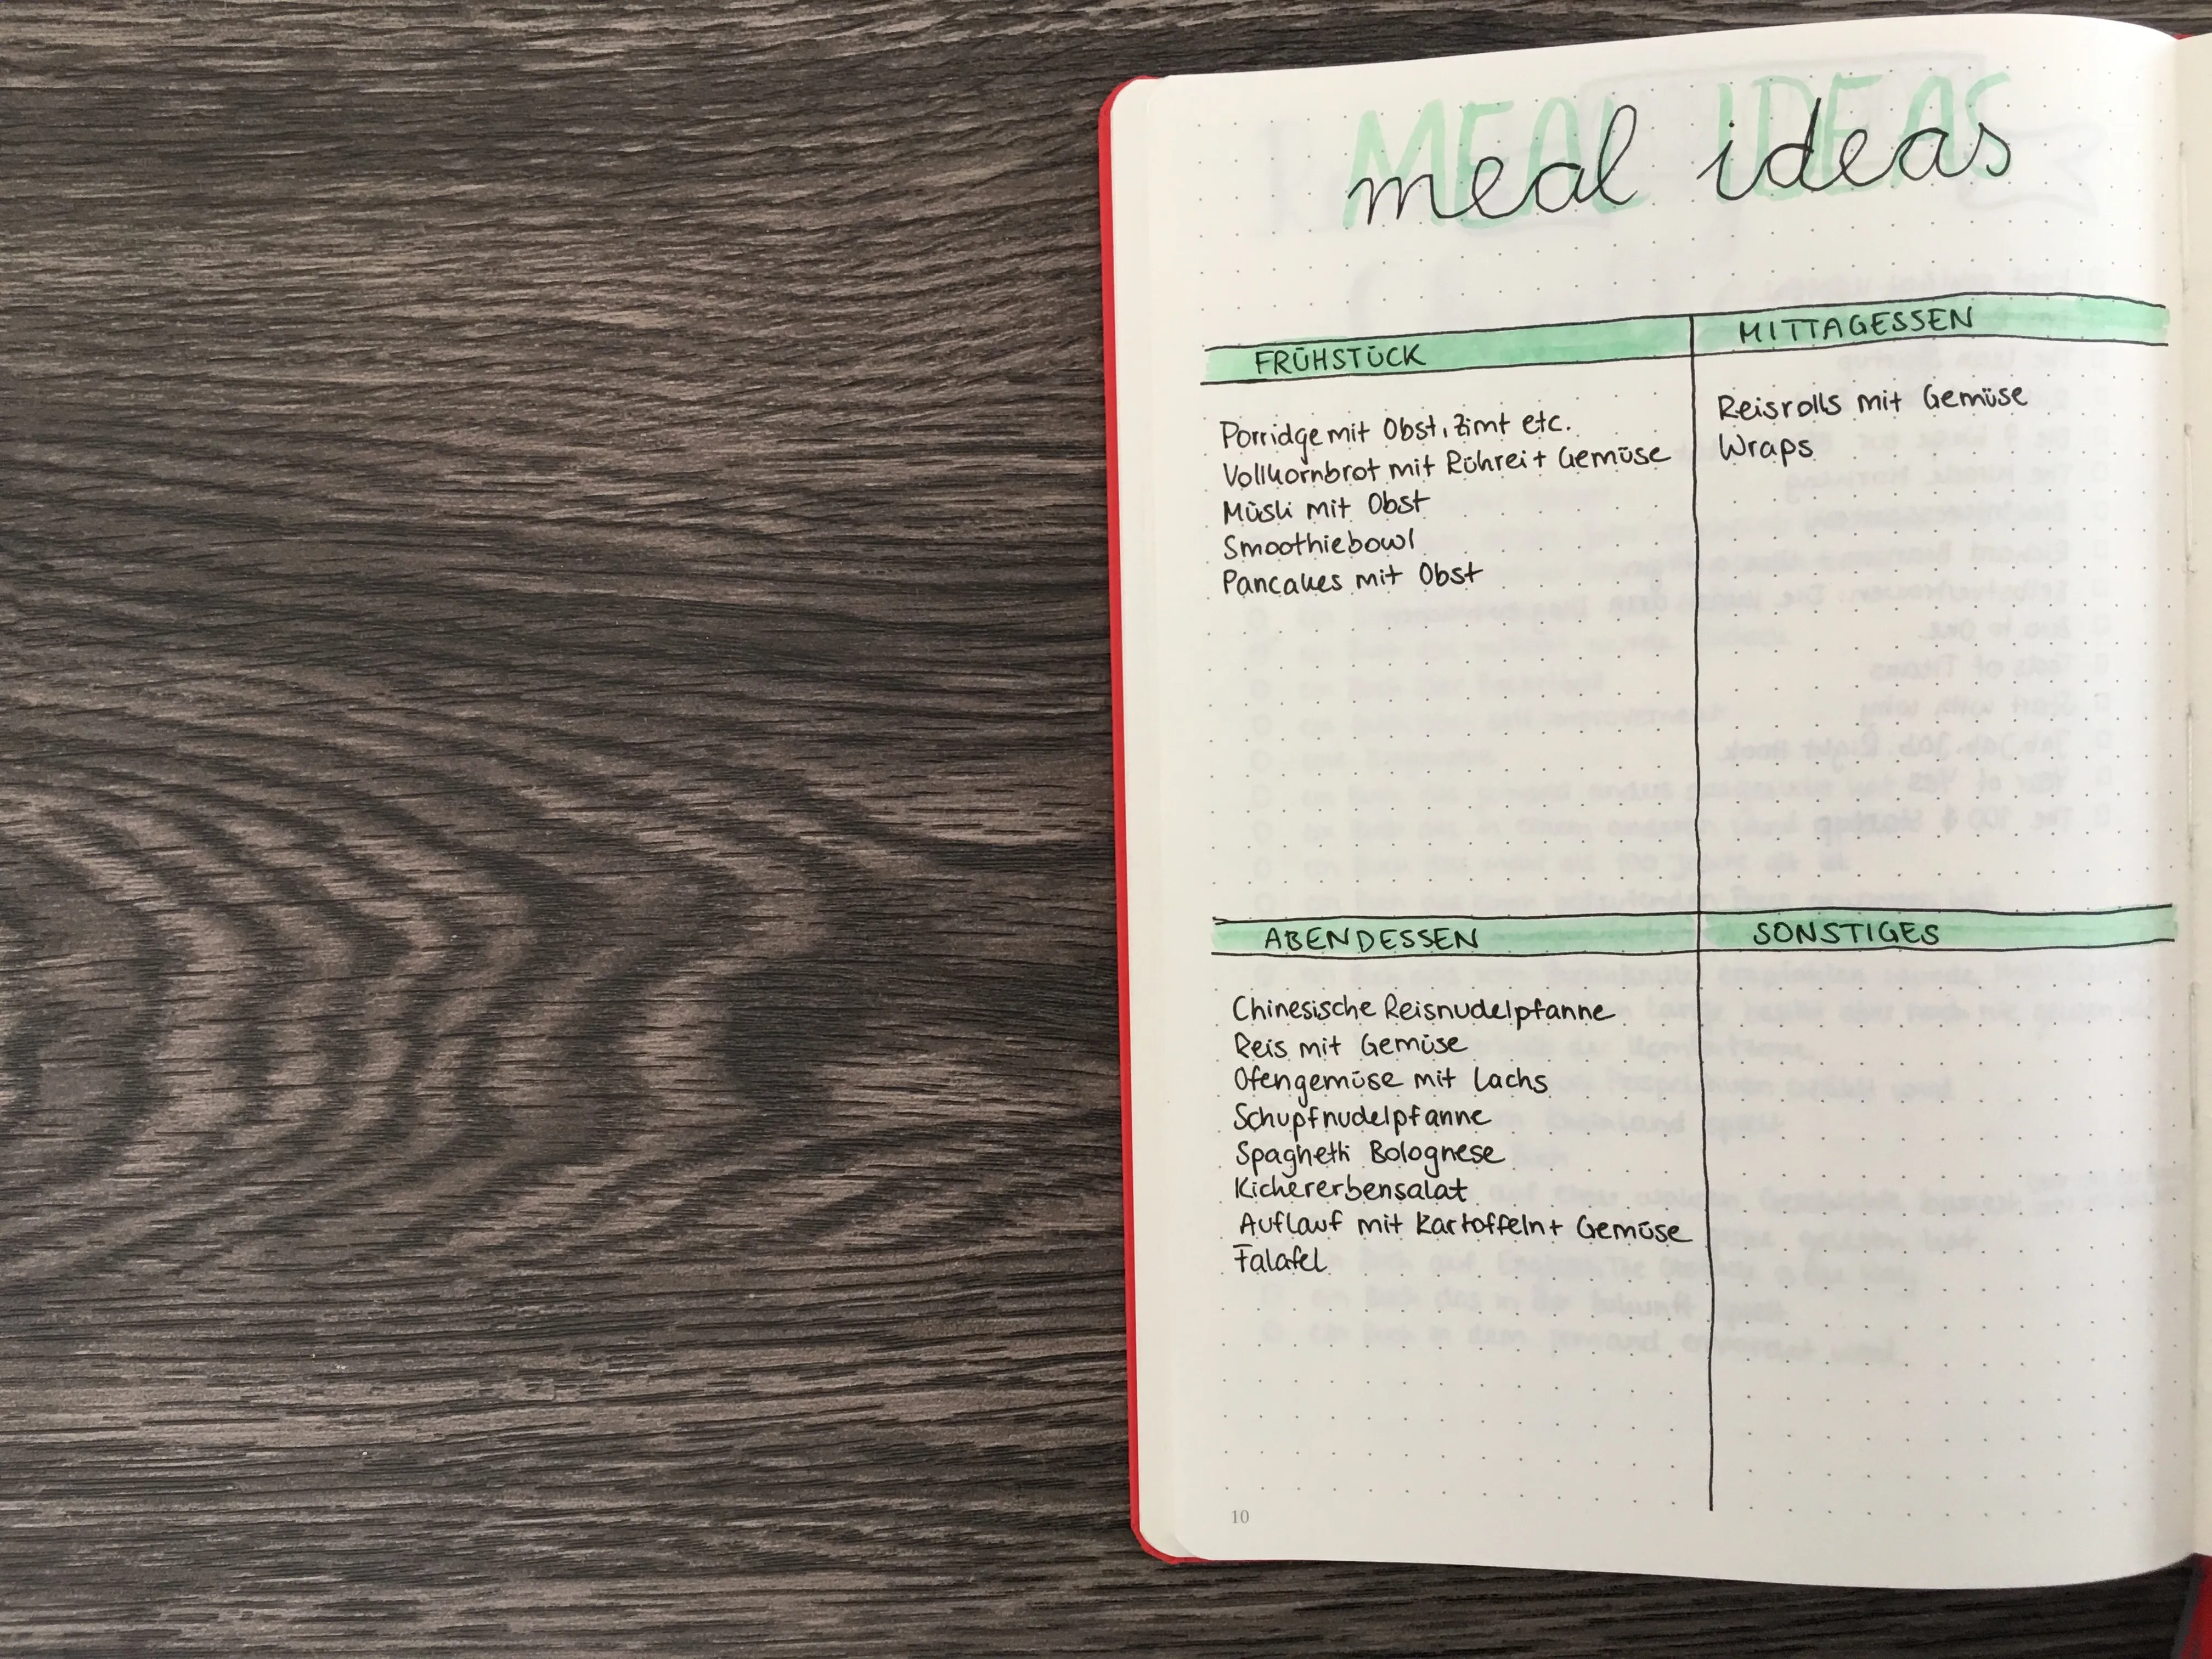 MEAL IDEAS
meal ideas
FRÜHSTÜCK
Porridge mit Obst, Zimt etc.
Vollkornbrot mit Rührei + Gemüse
Müsli mit Obst
Smoothiebowl
Pancakes mit Obst
MITTAGESSEN
Reisrolls mit Gemüse
Wraps
ABENDESSEN
Chinesische Reisnudelpfanne
Reis mit Gemüse
Ofengemüse mit Lachs
Schupfnudelpfanne
Spaghetti Bolognese
Kichererbensalat
Auflauf mit Kartoffeln + Gemüse
Falafel
SONSTIGES
10